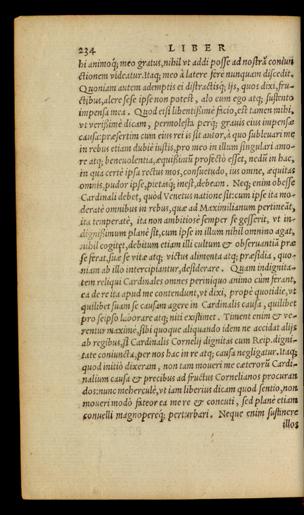 234 LIBER
hi animoq; meo gratus, nihil vt addi posse ad nostrā coniun
ctionem videatur. Itaq; meo à latere ferè nunquam discedit.
Quoniam autem ademptis ei distractisq; ijs, quos dixi, fru-
ctibus, alere sese ipse non potest, alo cum ego atq; sustento
impensa mea. Quod etsi libentissimè facio, est tamen mihi,
vt verissimè dicam, permolesta perq; grauis eius impensæ
causa: præsertim cum eius rei is sit autor, à quo subleuari me
in rebus etiam dubiè iustis, pro meo in illum singulari amo-
re atq; beneuolentia, æquissimū profectò esset, nedū in hac,
in qua certè ipsa rectus mos, consuetudo, ius omne, æquitas
omnis, pudor ipse, pietasq; inest, debeam. Neq; enim obesse
Cardinali debet, quòd Venetus natione sit: cum ipse ita mo-
deratè omnibus in rebus, quæ ad Maximilianum pertineāt,
ita temperatè, ita non ambitiosè semper se gesserit, vt in-
dignissimum planè sit, cum ipse in illum nihil omnino agat,
nihil cogitet, debitum etiam illi cultum & obseruantiā præ
se ferat, suæ se vitæ atq; victus alimenta atq; præsidia, quo-
niam ab illo intercipiantur, desiderare. Quam indignita-
tem reliqui Cardinales omnes periniquo animo cùm ferant,
ea de re ita apud me contendunt, vt dixi, propè quotidie, vt
quilibet suam se causam agere in Cardinalis causa, quilibet
pro seipso laborare atq; niti existimet. Timent enim & ve-
rentur maximè, sibi quoque aliquando idem ne accidat alijs
ab regibus, si Cardinalis Cornelij dignitas cum Reip. digni-
tate coniuncta, per nos hac in re atq; causa negligatur. Itaq;
quod initiò dixeram, non tam moueri me cæterorū Cardi-
nalium causa & precibus ad fructus Cornelianos procuran
dos: nunc mehercule, vt iam liberius dicam quod sentio, non
moueri modò fateor ea me re & concuti, sed planè etiam
conuelli magnopereq; perturbari. Neque enim sustinere
illos